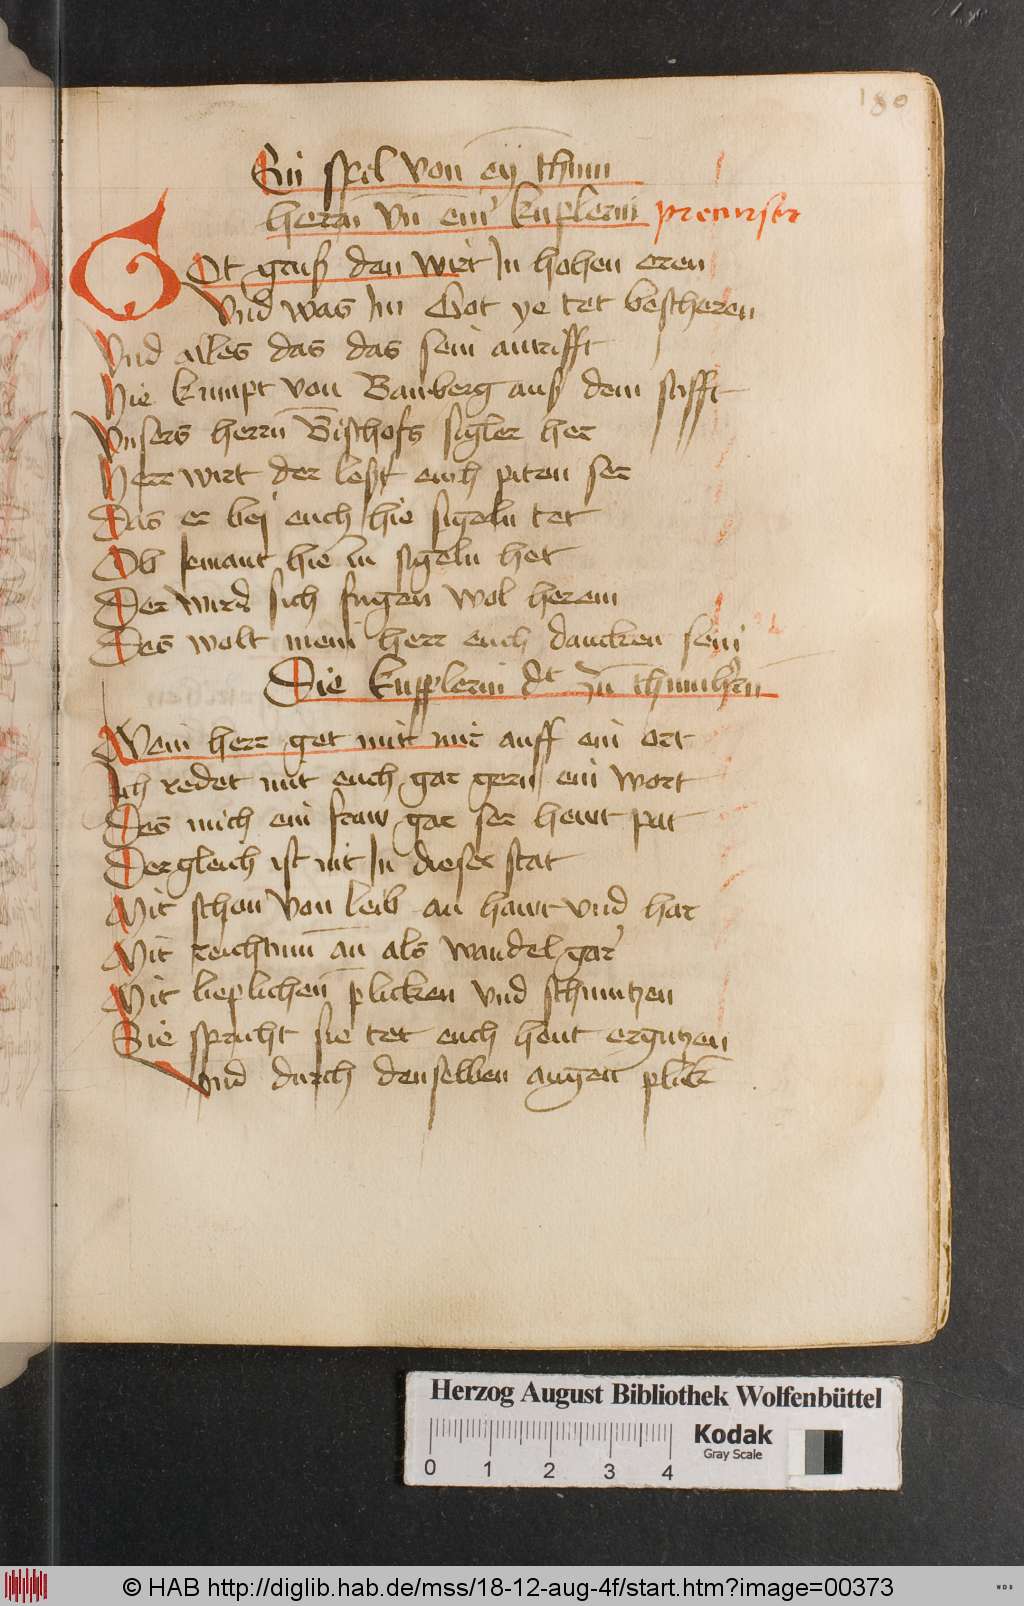 180
Ein spil von eij thum
herrñ vñ eim̄ kuplerin precursor
GOt gruß den wirt In hohen eren
Vnd was Im Got ye tet bescheren
Vnd alles das das sein antrifft
Hie kumpt von Bamberg auß dem stifft
Vnsers herrn Bischofs sigler her
Herr wirt der leßt euch piten ser
Das er bej euch hie sigeln tet
Ob Iemant hie zu sigeln het
Der wird sich fugen wol herein
Des wolt mein herr euch dancken sein
Die kupplerin dt zū thumhern
Mein herr get mit mir auff ein ort
Ich redet mit euch gar gern ein wort
Des mich ein fraw gar ser hewt pat
Der gleich ist nit In dieser stat
Mit schon von leib an hawt vnd har
Mit reichtum an als wandel gar
Mit lieplichen plicken vnd schmutzen
Sie spricht sie tet euch heut ergutzen
Vnd durch denselben augen plick
Herzog August Bibliothek Wolfenbüttel
Kodak
Gray Scale
0 1 2 3 4
© HAB http://diglib.hab.de/mss/18-12-aug-4f/start.htm?image=00373